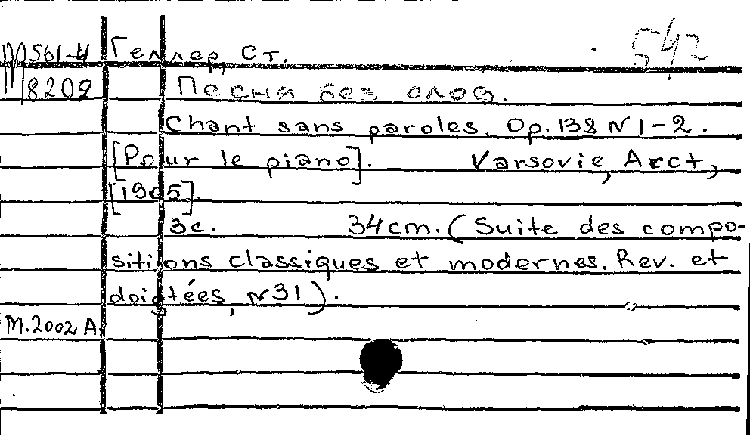 М 561-4 Геллер, Ст. 542
8202 Песня без слов.
Chant sans paroles. Op. 138 N 1-2.
[Pour le piano]. Varsovie, Arct,
[1905].
3c. 34cm. (Suite des compo-
sitions classiques et modernes. Rev. et
doigtées, N 31).
M.2002 A